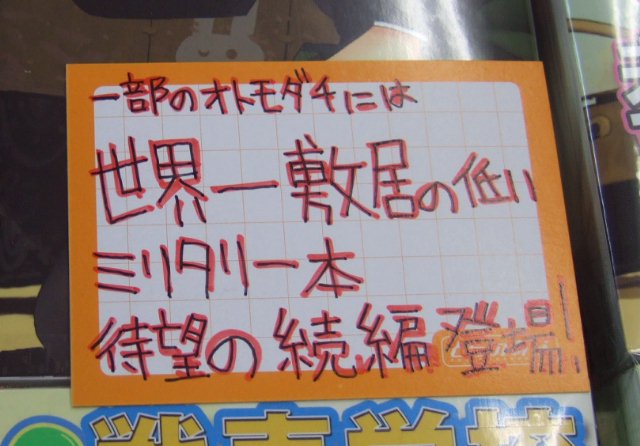 一部のオトモダチには
世界一敷居の低い
ミリタリー本
待望の続編登場!